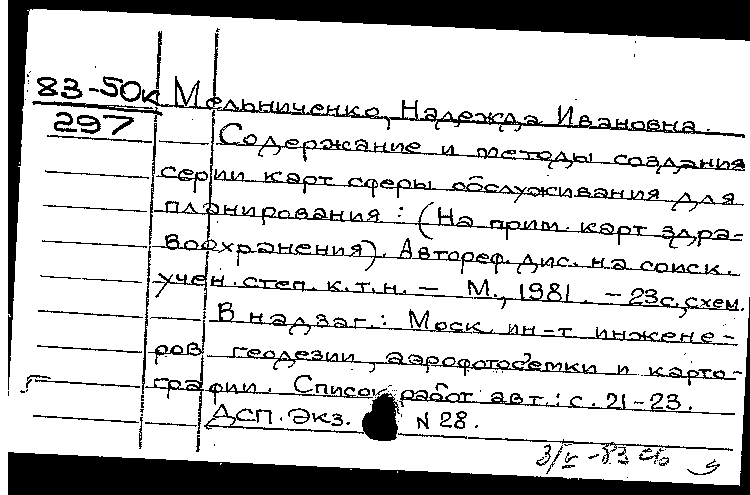 83-50к Мельниченко, Надежда Ивановна.
297
Содержание и методы создания
серии карт сферы обслуживания для
планирования: (На прим. карт здра-
воохранения). Автореф. дис. на соиск.
учен. степ. к.т.н. — М., 1981. — 23с., схем.
В надзаг.: Моск. ин-т инжене-
ров геодезии, аэрофотосъемки и карто-
графии. Список работ авт.: с. 21-23.
ДСП. Экз. N 28.
3/V -83